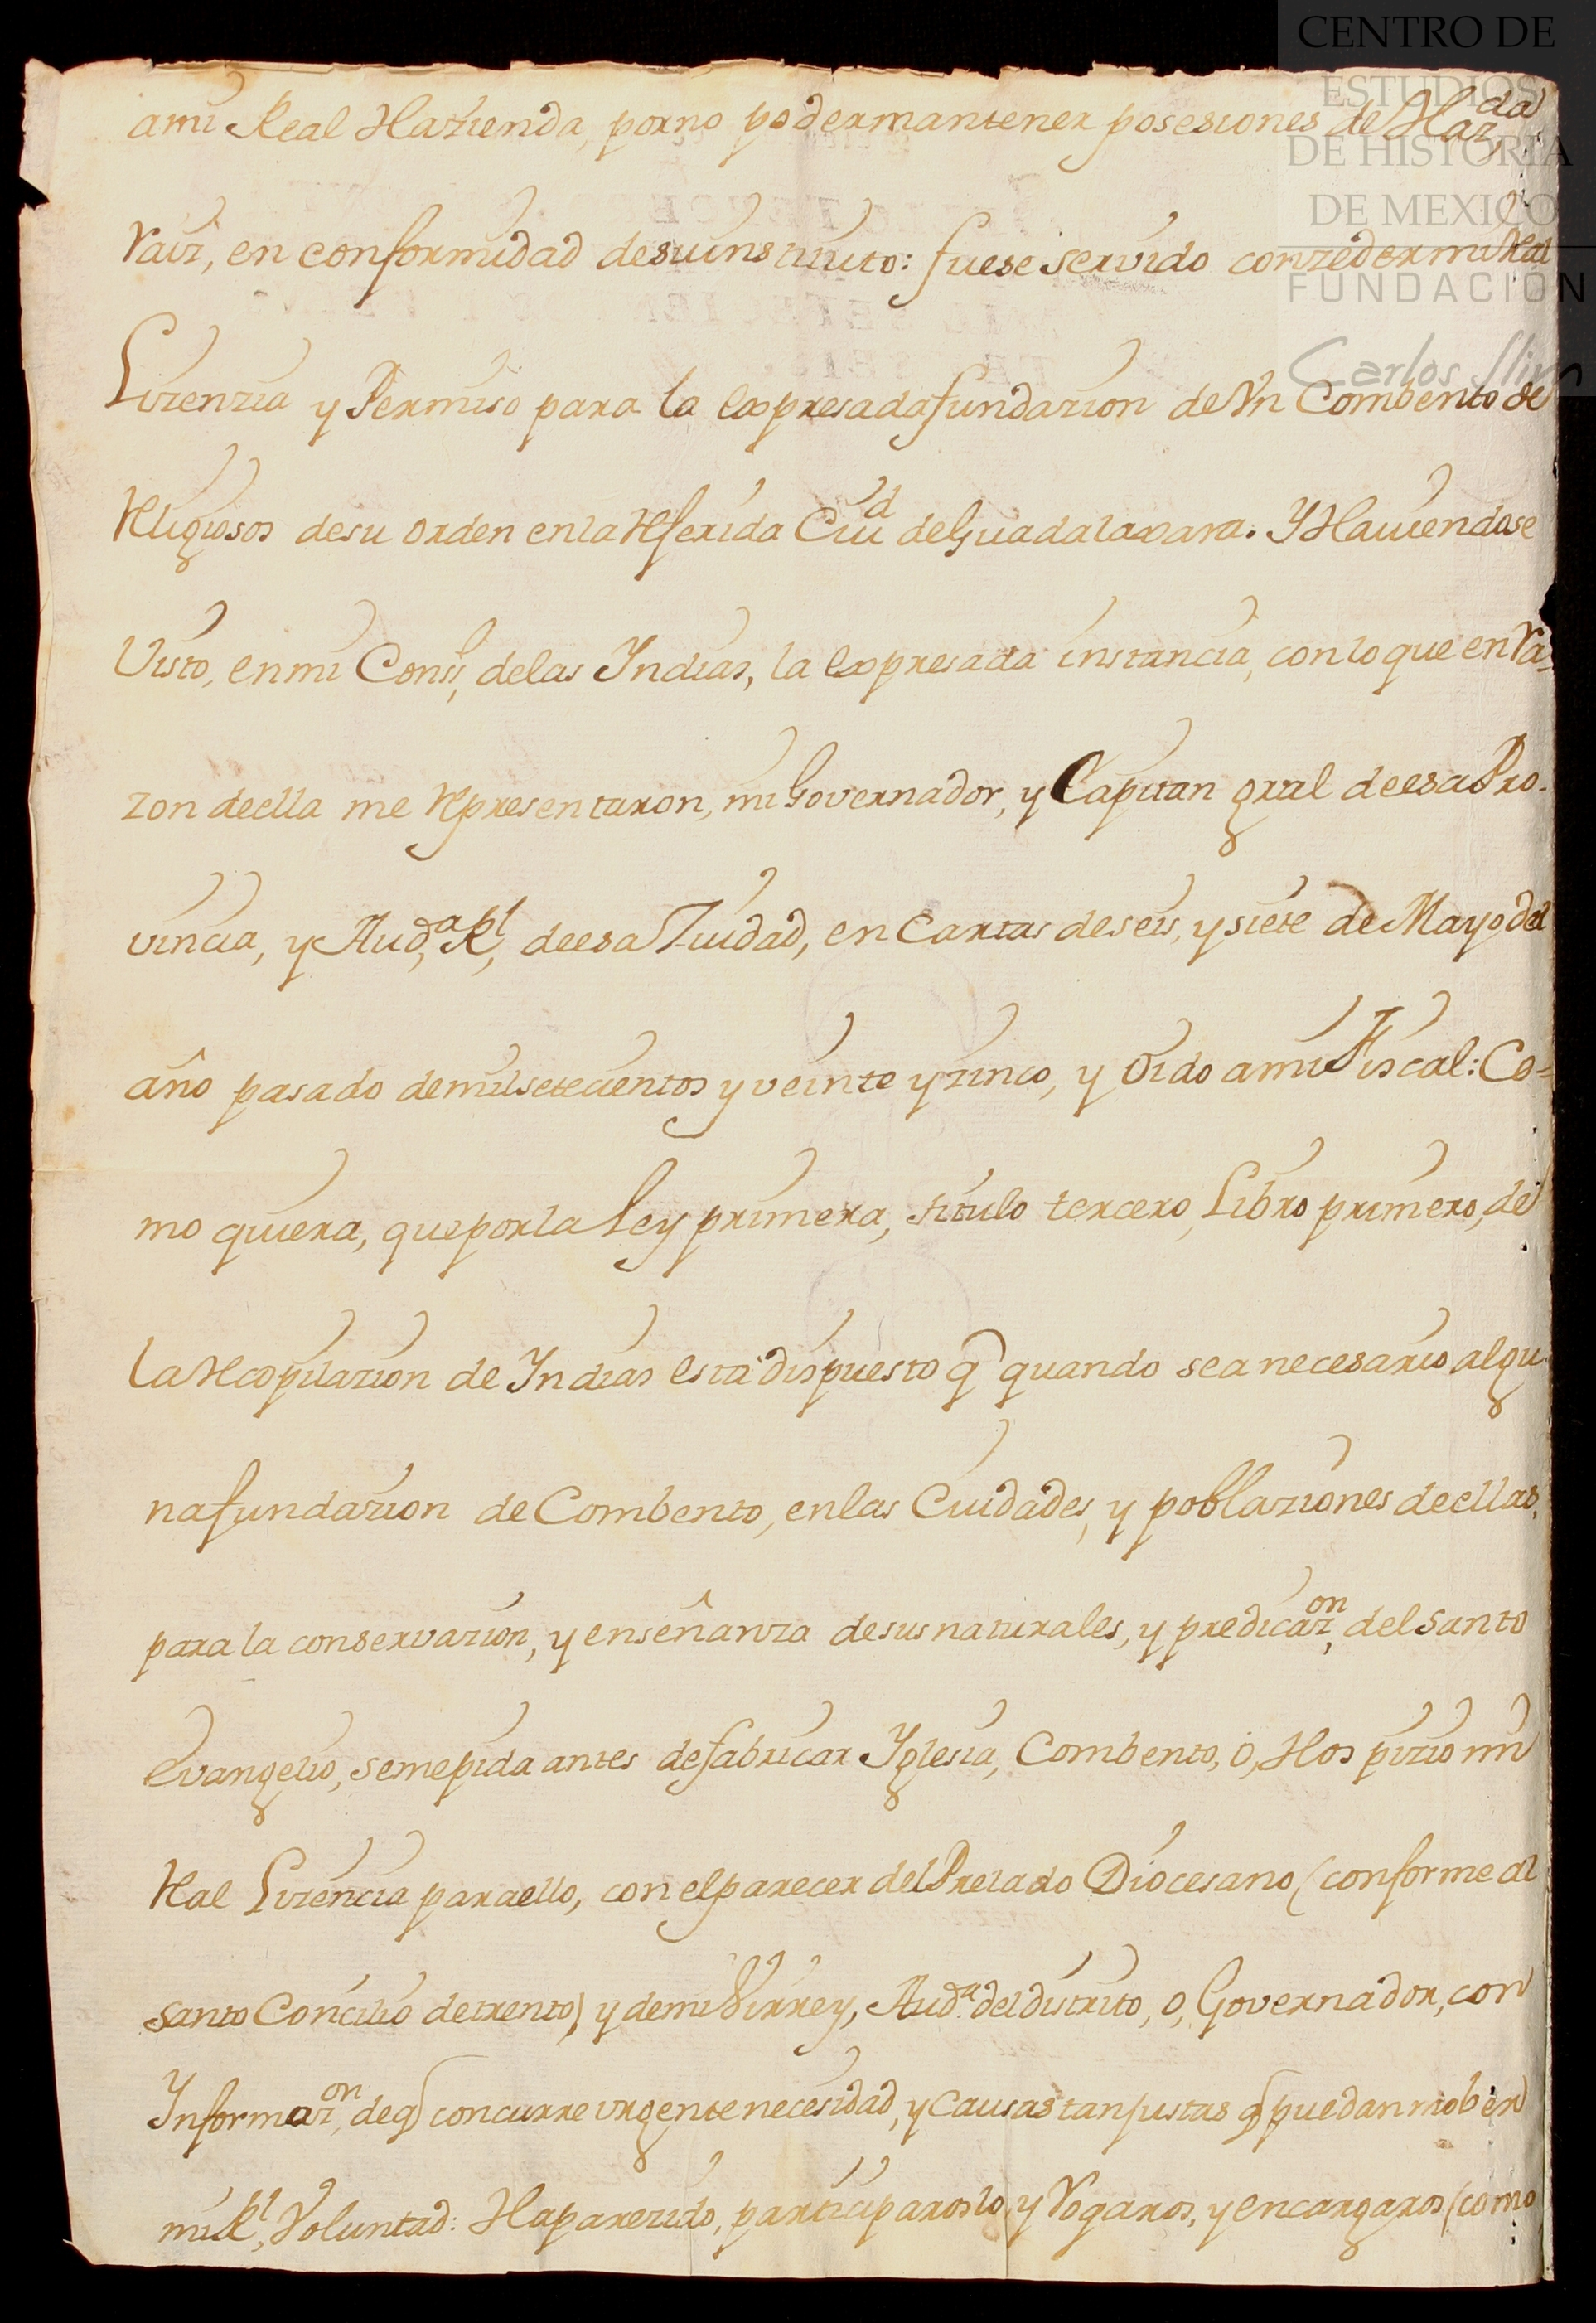 CENTRO DE
ESTUDIOS
DE HISTORIA
DE MEXICO
FUNDACIÓN
Carlos Slim
ami Real Hazienda, porno podermantener posesiones de Haz,da
raiz, en conformidad desuinstituto: fuese servido conzedermi Real
Lizenzia y Permiso para la expresadafundazion deVn Combento de
Religiosos desu orden enla Referida Ciud deGuadalaxara. Y Hauiendose
Visto, enmi Consº, delas Yndias, la expresada instancia, conloque enRa-
zon deella me Representaron, mi Governador, y Capitan gral deesa Pro-
vincia, y Audª, Rl, deesa Ziudad, en Cartas deseis, ysiete de Mayo del
año pasado demilsetecientos y veinte yzinco, y oido ami Fiscal: Co-
mo quiera, queporla Ley primera, titulo tercero, Libro primero, de
la Recopilazion de Yndias esta dispuesto q quando sea necesario algu-
nafundazion de Combento, enlas Ciudades, y poblaziones deellas,
para la conservazion, y enseñanza desus naturales, y predicaz,on del santo
evangelio, semepida antes defabricar Yglesia, Combento, o, Hospizio mi
Real Lizencia paraello, con elparecer del Prelado Diocesano (conforme al
santo Concilio detrento) y demi Virrey, Audª. deldistrito, o, Governador, con
Informaz,on deq concurre urgente necesidad, y causas tan justas q puedan mober
mi Rl, Voluntad: Haparezido, participaroslo, y Rogaros, y encargaros (como